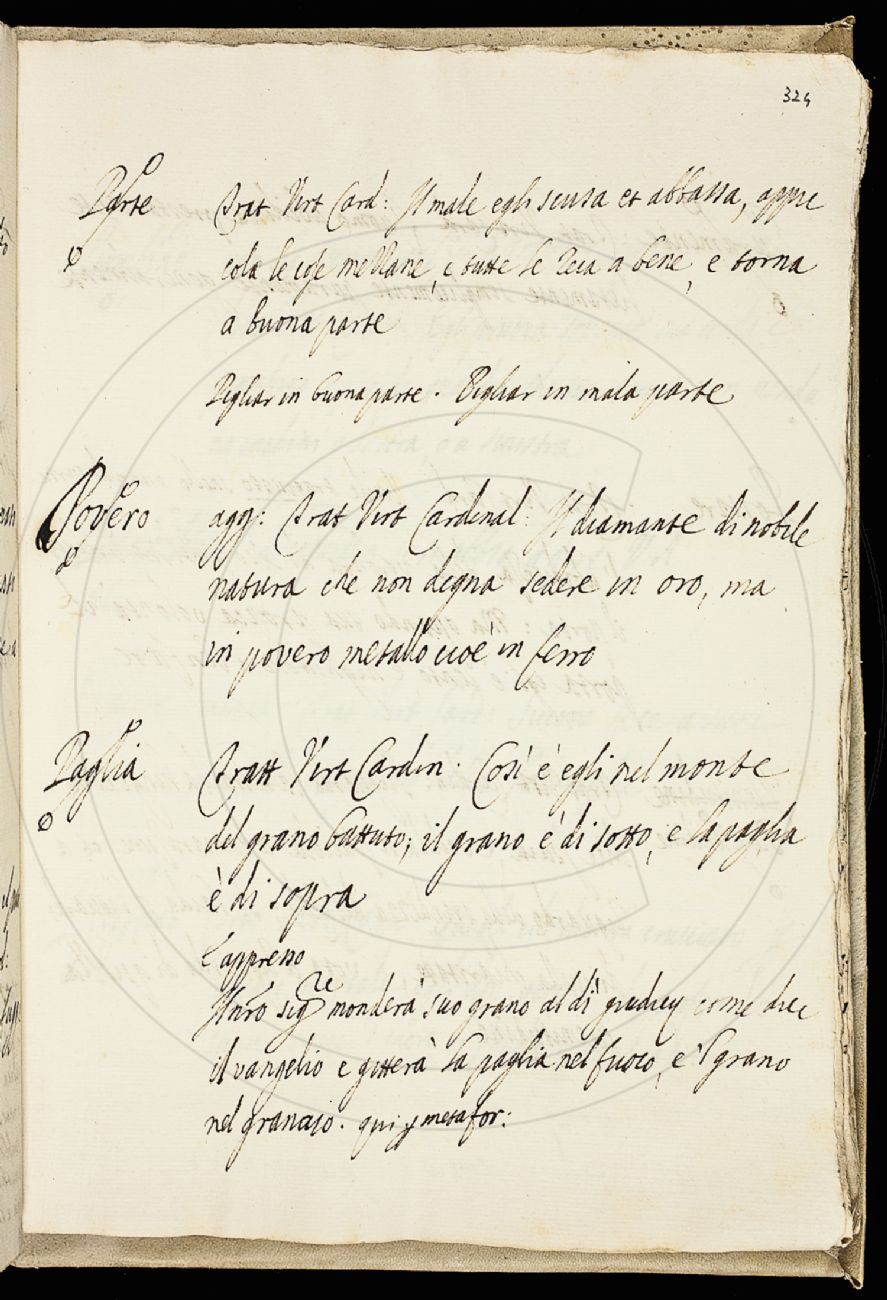 324
Parte Trat Virt Card: Il male egli scusa et abbassa, appic
cola le cose mezzane, e tutte le reca a bene, e torna
a buona parte
Pigliar in buona parte. Pigliar in mala parte
Povero agg: Trat Virt Cardenal: Il diamante di nobile
natura che non degna sedere in oro, ma
in povero metallo cioè in ferro
Paglia Tratt Virt Cardin. Così è egli nel monte
del grano battuto; il grano è di sotto, e la paglia
è di sopra
E appresso
Il nro sigre monderà suo grano al dì come dice
il vangelio e gitterà la paglia nel fuoco, e 'l grano
nel granaio. qui metafor: